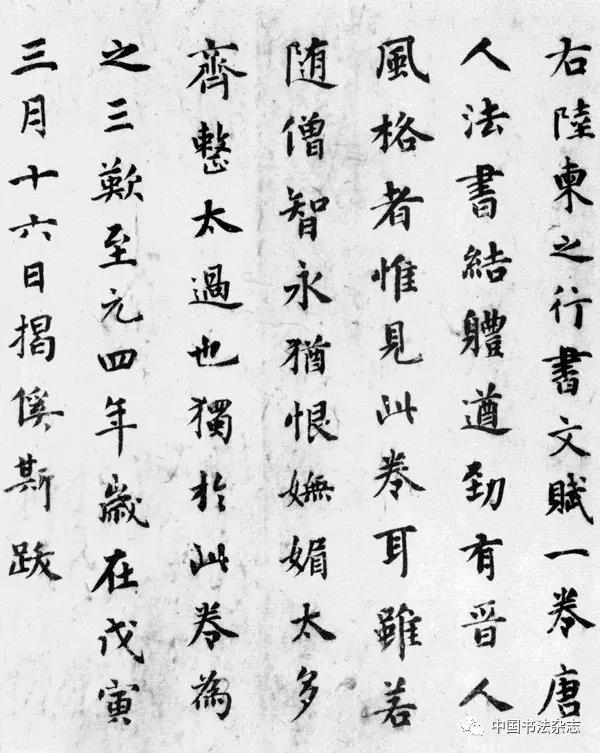 右陸柬之行書文賦一卷唐
人法書結軆遒勁有晋人
風格者惟見此卷耳雖若
随僧智永猶恨嫵媚太多
齊整太過也獨於此卷為
之三歎至元四年歲在戊寅
三月十六日揭傒斯跋
中国书法杂志